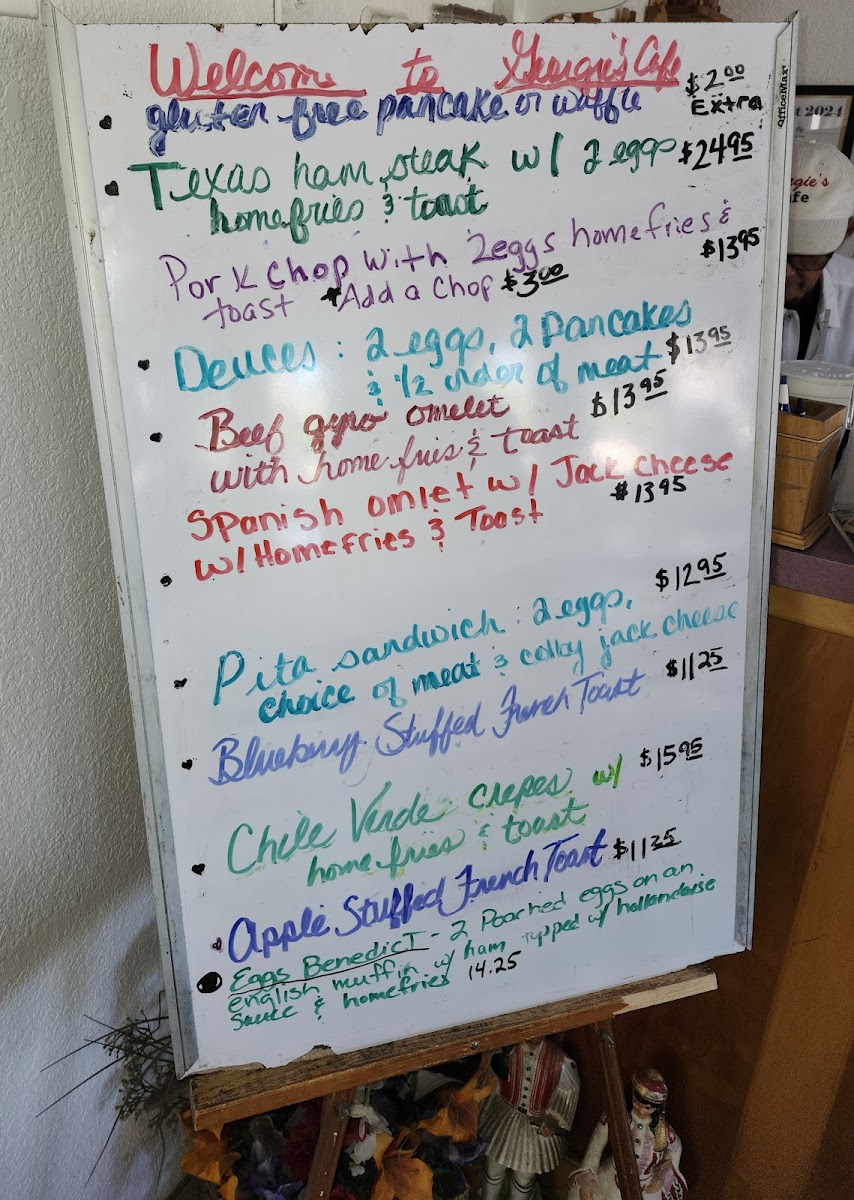 Welcome to Georgie's Cafe
gluten free pancake or waffle $2.00 Extra
Texas ham steak w/ 2 eggs $24.95
homefries & toast
Pork Chop with 2 eggs homefries &
toast *Add a Chop $3.00 $13.95
Deuces: 2 eggs, 2 Pancakes
& 1/2 order of meat $13.95
Beef gyro omelet $13.95
with home fries & toast
Spanish omlet w/ Jack cheese
w/ Homefries & Toast $13.95
Pita sandwich: 2 eggs, $12.95
choice of meat & colby jack cheese
Blueberry Stuffed French Toast $11.25
Chile Verde crepes w/ $15.95
home fries & toast
Apple Stuffed French Toast $11.25
Eggs Benedict - 2 Poached eggs on an
english muffin w/ ham topped w/ hollandaise
sauce & homefries 14.25
OfficeMax
2024
gie's
afe